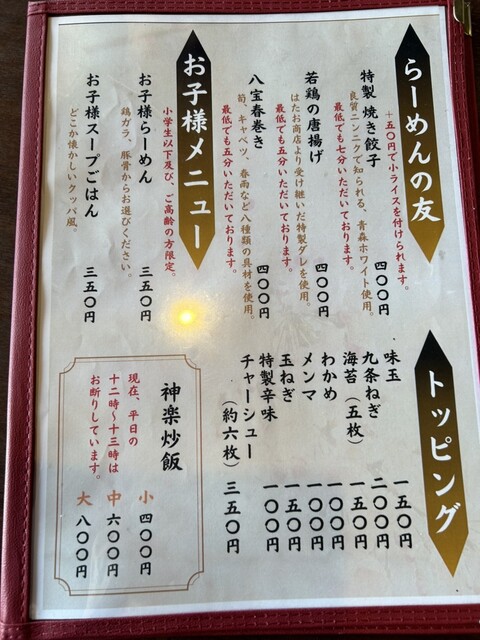 らーめんの友
+五〇円で小ライスを付けられます。
特製 焼き餃子 四〇〇円
良質ニンニクで知られる、青森ホワイト使用。
最低でも七分いただいております。
若鶏の唐揚げ 四〇〇円
はたお商店より受け継いだ特製ダレを使用。
最低でも五分いただいております。
八宝春巻き 四〇〇円
筍、キャベツ、春雨など八種類の具材を使用。
最低でも五分いただいております。
お子様メニュー
小学生以下及び、ご高齢の方限定。
お子様らーめん 三五〇円
鶏ガラ、豚骨からお選びください。
お子様スープごはん 三五〇円
どこか懐かしいクッパ風。
トッピング
味玉 一五〇円
九条ねぎ 二〇〇円
海苔(五枚) 一五〇円
わかめ 一〇〇円
メンマ 一〇〇円
玉ねぎ 一五〇円
特製辛味 一〇〇円
チャーシュー(約六枚) 三五〇円
神楽炒飯
現在、平日の
十二時〜十三時は
お断りしています。
小 四〇〇円
中 六〇〇円
大 八〇〇円